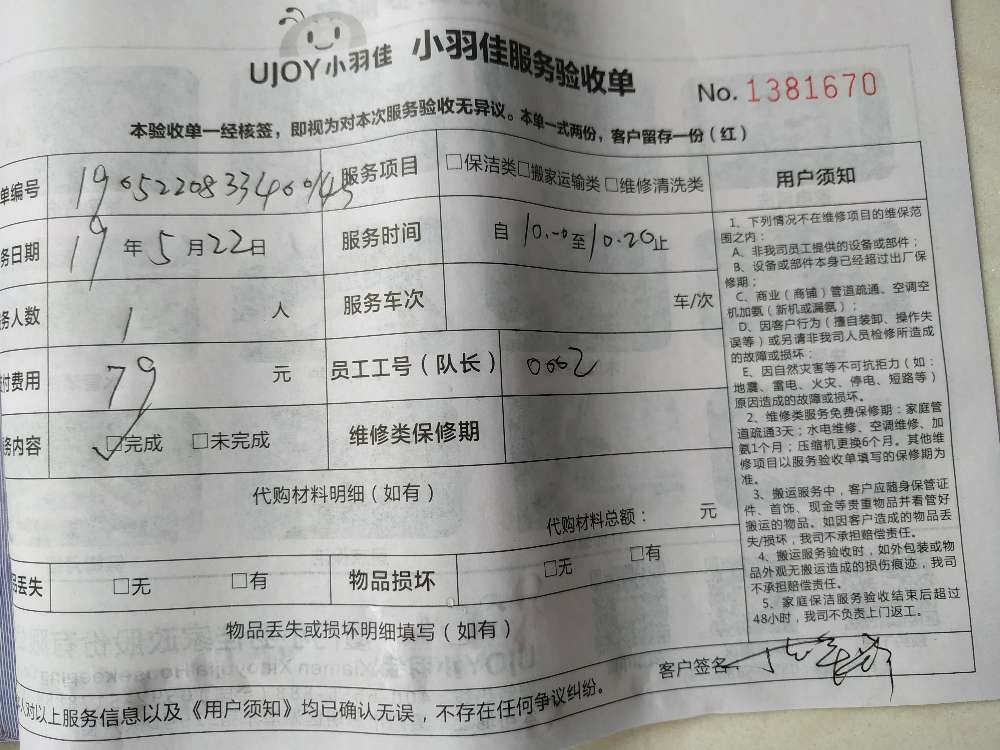 UJOY小羽佳 小羽佳服务验收单
No. 1381670
本验收单一经核签，即视为对本次服务验收无异议。本单一式两份，客户留存一份（红）
单编号 服务项目 □保洁类□搬家运输类□维修清洗类
务日期 19年5月22日 服务时间 自10.00至10.20止
务人数 1人 服务车次 车/次
付费用 79元 员工工号（队长） 0002
务内容 ☑完成 □未完成 维修类保修期
代购材料明细（如有）
代购材料总额： 元
品丢失 □无 □有 物品损坏 □无 □有
物品丢失或损坏明细填写（如有）
用户须知
1、下列情况不在维修项目的维保范
围之内：
A、非我司员工提供的设备或部件；
B、设备或部件本身已经超过出厂保
修期；
C、商业（商铺）管道疏通、空调空
机加氨（新机或漏氨）；
D、因客户行为（擅自装卸、操作失
误等）或另请非我司人员检修所造成
的故障或损坏；
E、因自然灾害等不可抗拒力（如：
地震、雷电、火灾、停电、短路等）
原因造成的故障或损坏。
2、维修类服务免费保修期：家庭管
道疏通3天；水电维修、空调维修、加
氨1个月；压缩机更换6个月。其他维
修项目以服务验收单填写的保修期为
准。
3、搬运服务中，客户应随身保管证
件、首饰、现金等贵重物品并看管好
搬运的物品。如因客户造成的物品丢
失/损坏，我司不承担赔偿责任。
4、搬运服务验收时，如外包装或物
品外观无搬运造成的损伤痕迹，我司
不承担赔偿责任。
5、家庭保洁服务验收结束后超过
48小时，我司不负责上门返工。
客户签名
人对以上服务信息以及《用户须知》均已确认无误，不存在任何争议纠纷。